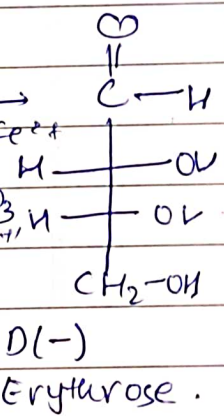 O
||
→ C—H
Fe²⁺
H OH
3 H OH
CH₂-OH
D(-)
Erythrose.